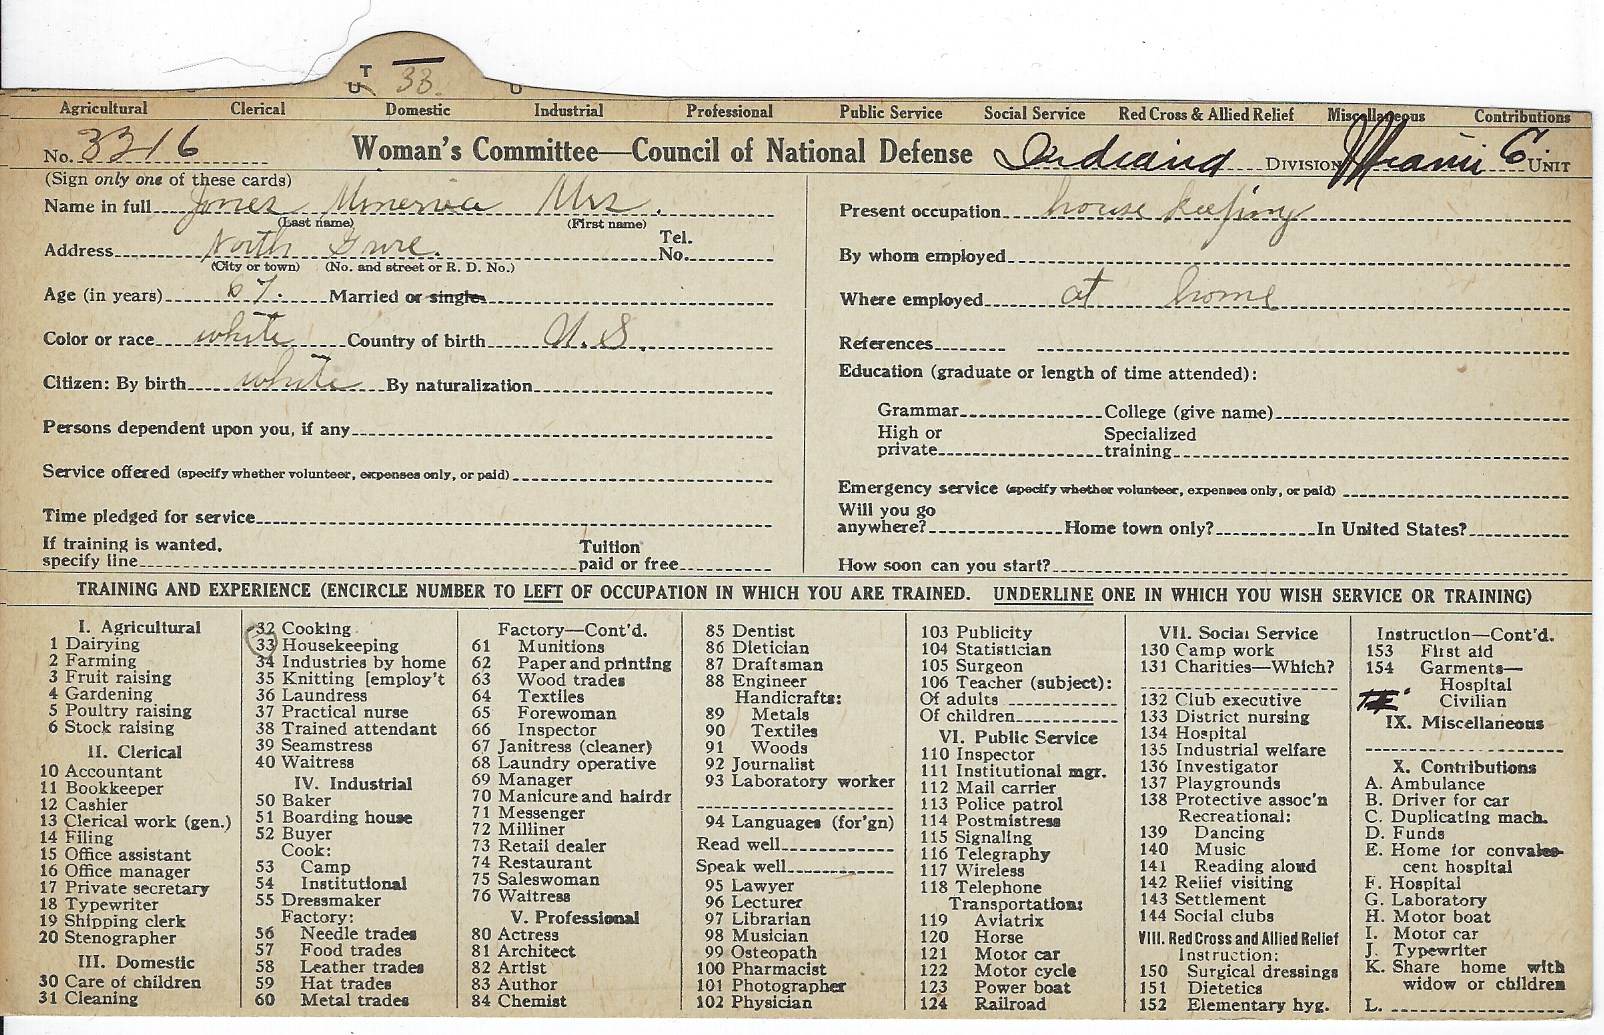 T U 33.
Agricultural Clerical Domestic Industrial Professional Public Service Social Service Red Cross & Allied Relief Miscellaneous Contributions
No. 3316 Woman's Committee—Council of National Defense Indiana DIVISION Miami C. UNIT
(Sign only one of these cards)
Name in full Jones Minerva Mrs.
(Last name) (First name)
Address North Grve. Tel. No.
(City or town) (No. and street or R. D. No.)
Age (in years) 67. Married or single
Color or race white Country of birth U.S.
Citizen: By birth white By naturalization
Persons dependent upon you, if any
Service offered (specify whether volunteer, expenses only, or paid)
Time pledged for service
If training is wanted, specify line Tuition paid or free
Present occupation house keeping
By whom employed
Where employed at home
References
Education (graduate or length of time attended):
Grammar College (give name)
High or private Specialized training
Emergency service (specify whether volunteer, expenses only, or paid)
Will you go anywhere? Home town only? In United States?
How soon can you start?
TRAINING AND EXPERIENCE (ENCIRCLE NUMBER TO LEFT OF OCCUPATION IN WHICH YOU ARE TRAINED. UNDERLINE ONE IN WHICH YOU WISH SERVICE OR TRAINING)
I. Agricultural
1 Dairying
2 Farming
3 Fruit raising
4 Gardening
5 Poultry raising
6 Stock raising
II. Clerical
10 Accountant
11 Bookkeeper
12 Cashier
13 Clerical work (gen.)
14 Filing
15 Office assistant
16 Office manager
17 Private secretary
18 Typewriter
19 Shipping clerk
20 Stenographer
III. Domestic
30 Care of children
31 Cleaning
32 Cooking
33 Housekeeping
34 Industries by home
35 Knitting [employ't
36 Laundress
37 Practical nurse
38 Trained attendant
39 Seamstress
40 Waitress
IV. Industrial
50 Baker
51 Boarding house
52 Buyer
Cook:
53 Camp
54 Institutional
55 Dressmaker
Factory:
56 Needle trades
57 Food trades
58 Leather trades
59 Hat trades
60 Metal trades
Factory—Cont'd.
61 Munitions
62 Paper and printing
63 Wood trades
64 Textiles
65 Forewoman
66 Inspector
67 Janitress (cleaner)
68 Laundry operative
69 Manager
70 Manicure and hairdr
71 Messenger
72 Milliner
73 Retail dealer
74 Restaurant
75 Saleswoman
76 Waitress
V. Professional
80 Actress
81 Architect
82 Artist
83 Author
84 Chemist
85 Dentist
86 Dietician
87 Draftsman
88 Engineer
Handicrafts:
89 Metals
90 Textiles
91 Woods
92 Journalist
93 Laboratory worker
94 Languages (for'gn)
Read well
Speak well
95 Lawyer
96 Lecturer
97 Librarian
98 Musician
99 Osteopath
100 Pharmacist
101 Photographer
102 Physician
103 Publicity
104 Statistician
105 Surgeon
106 Teacher (subject):
Of adults
Of children
VI. Public Service
110 Inspector
111 Institutional mgr.
112 Mail carrier
113 Police patrol
114 Postmistress
115 Signaling
116 Telegraphy
117 Wireless
118 Telephone
Transportation:
119 Aviatrix
120 Horse
121 Motor car
122 Motor cycle
123 Power boat
124 Railroad
VII. Social Service
130 Camp work
131 Charities—Which?
132 Club executive
133 District nursing
134 Hospital
135 Industrial welfare
136 Investigator
137 Playgrounds
138 Protective assoc'n
Recreational:
139 Dancing
140 Music
141 Reading aloud
142 Relief visiting
143 Settlement
144 Social clubs
VIII. Red Cross and Allied Relief
Instruction:
150 Surgical dressings
151 Dietetics
152 Elementary hyg.
Instruction—Cont'd.
153 First aid
154 Garments—
Hospital
Civilian
IX. Miscellaneous
X. Contributions
A. Ambulance
B. Driver for car
C. Duplicating mach.
D. Funds
E. Home for convales-
cent hospital
F. Hospital
G. Laboratory
H. Motor boat
I. Motor car
J. Typewriter
K. Share home with
widow or children
L.